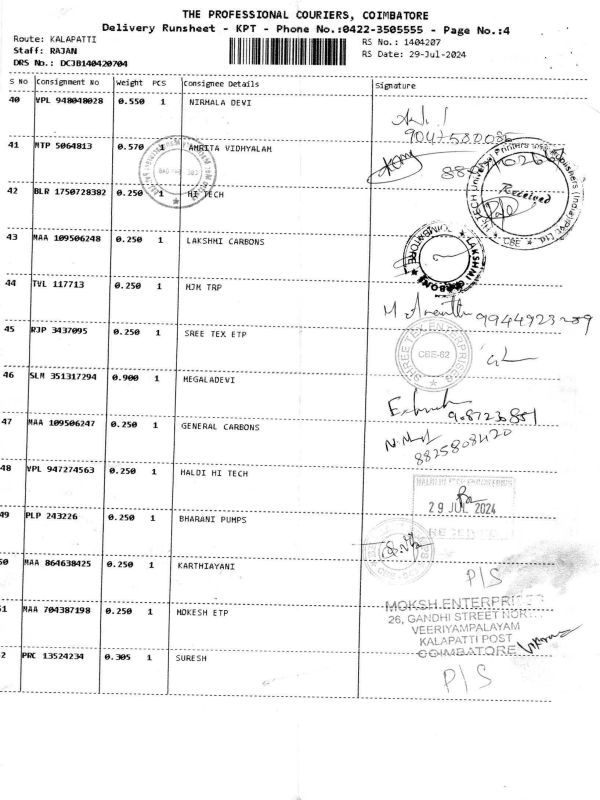 THE PROFESSIONAL COURIERS, COIMBATORE
Delivery Runsheet - KPT - Phone No.:0422-3505555 - Page No.:4
Route: KALAPATTI
Staff: RAJAN
DRS No.: DCJB140420704
RS No.: 1404207
RS Date: 29-Jul-2024
S No Consignment No Weight PCS Consignee Details Signature
40 VPL 948048028 0.550 1 NIRMALA DEVI
41 MTP 5064813 0.570 1 AMRITA VIDHYALAM
42 BLR 1750728382 0.250 1 HI TECH
Received
43 MAA 109506248 0.250 1 LAKSHMI CARBONS
LAKSHMI CARBONS
44 TVL 117713 0.250 1 MJM TRP
45 RJP 3437095 0.250 1 SREE TEX ETP
SHREE TEX ENTERPRISES
CBE-62
46 SLM 351317294 0.900 1 MEGALADEVI
47 MAA 109506247 0.250 1 GENERAL CARBONS
8825808420
48 VPL 947274563 0.250 1 HALDI HI TECH
29 JUL 2024
49 PLP 243226 0.250 1 BHARANI PUMPS
50 MAA 864638425 0.250 1 KARTHIAYANI
P/S
51 MAA 704387198 0.250 1 MOKESH ETP
MOKSH ENTERPRISES
26, GANDHI STREET
VEERIYAMPALAYAM
KALAPATTI POST
COIMBATORE
52 PRC 13524234 0.305 1 SURESH
P/S